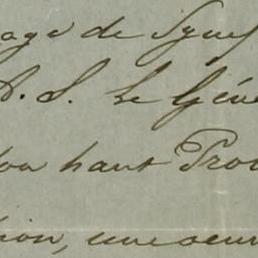 age de Syne
A. S. Le Géné
ton haut Pro
ion, une oeuv